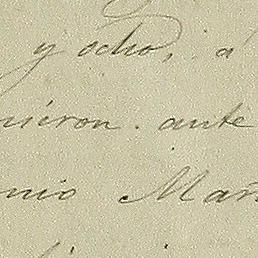 y ocho, á
nieron ante
onio Mañ